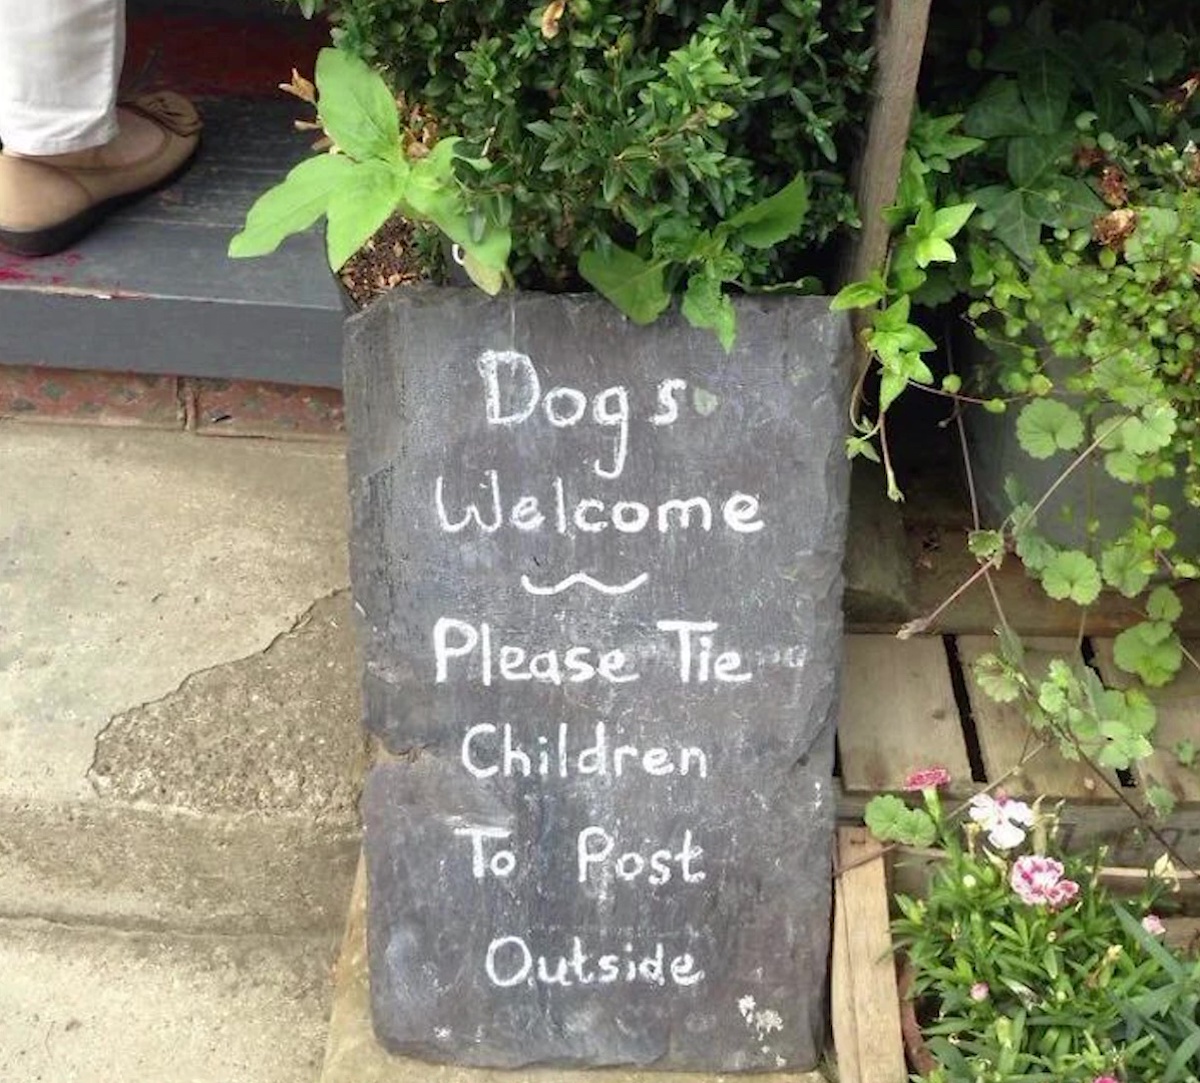 Dogs
Welcome
Please Tie
Children
To Post
Outside